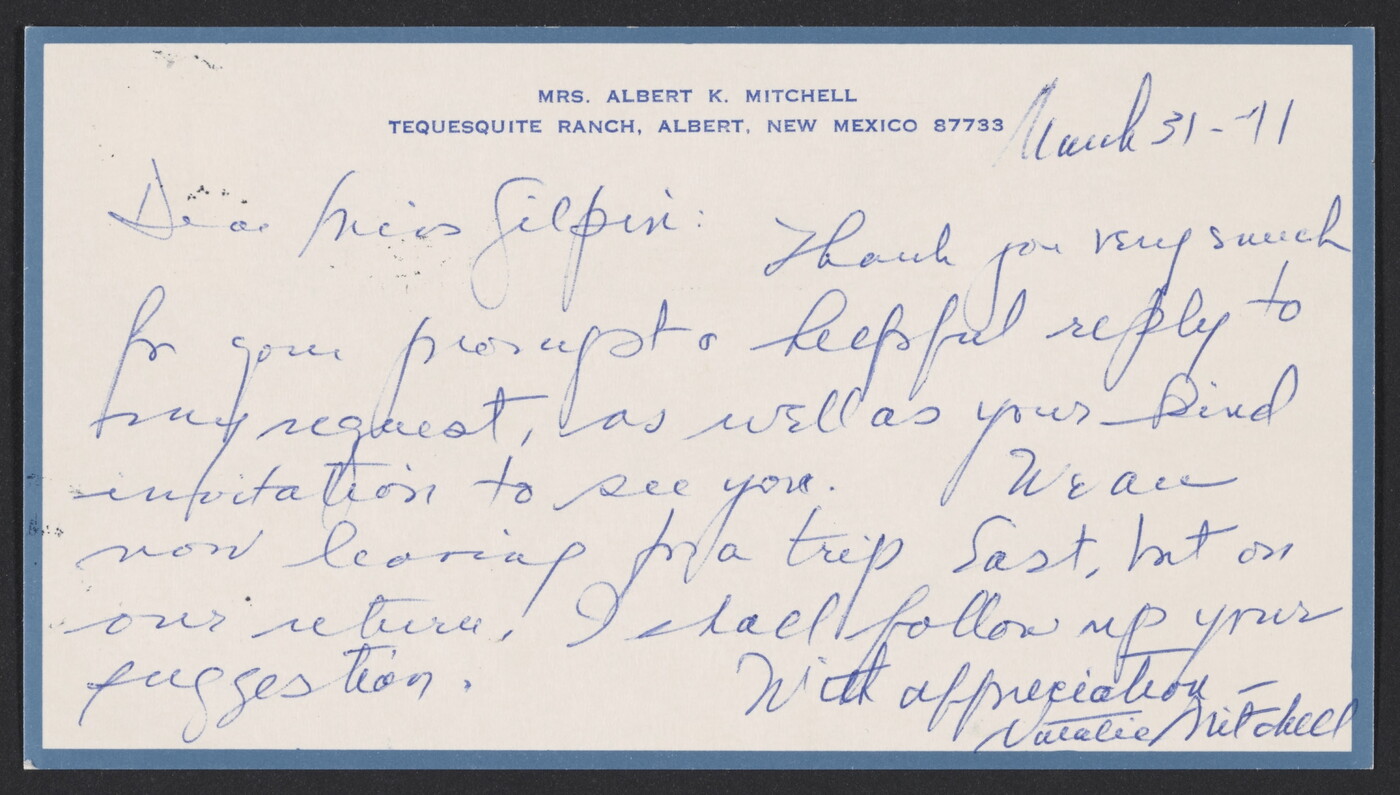 MRS. ALBERT K. MITCHELL
TEQUESQUITE RANCH, ALBERT, NEW MEXICO 87733
March 31-71
Dear Miss Gilpin:
Thank you very much
for your prompt & helpful reply to
my request, as well as your kind
invitation to see you. We are
now leaving for a trip East, but on
our return, I shall follow up your
suggestion.
With appreciation -
Natalie Mitchell